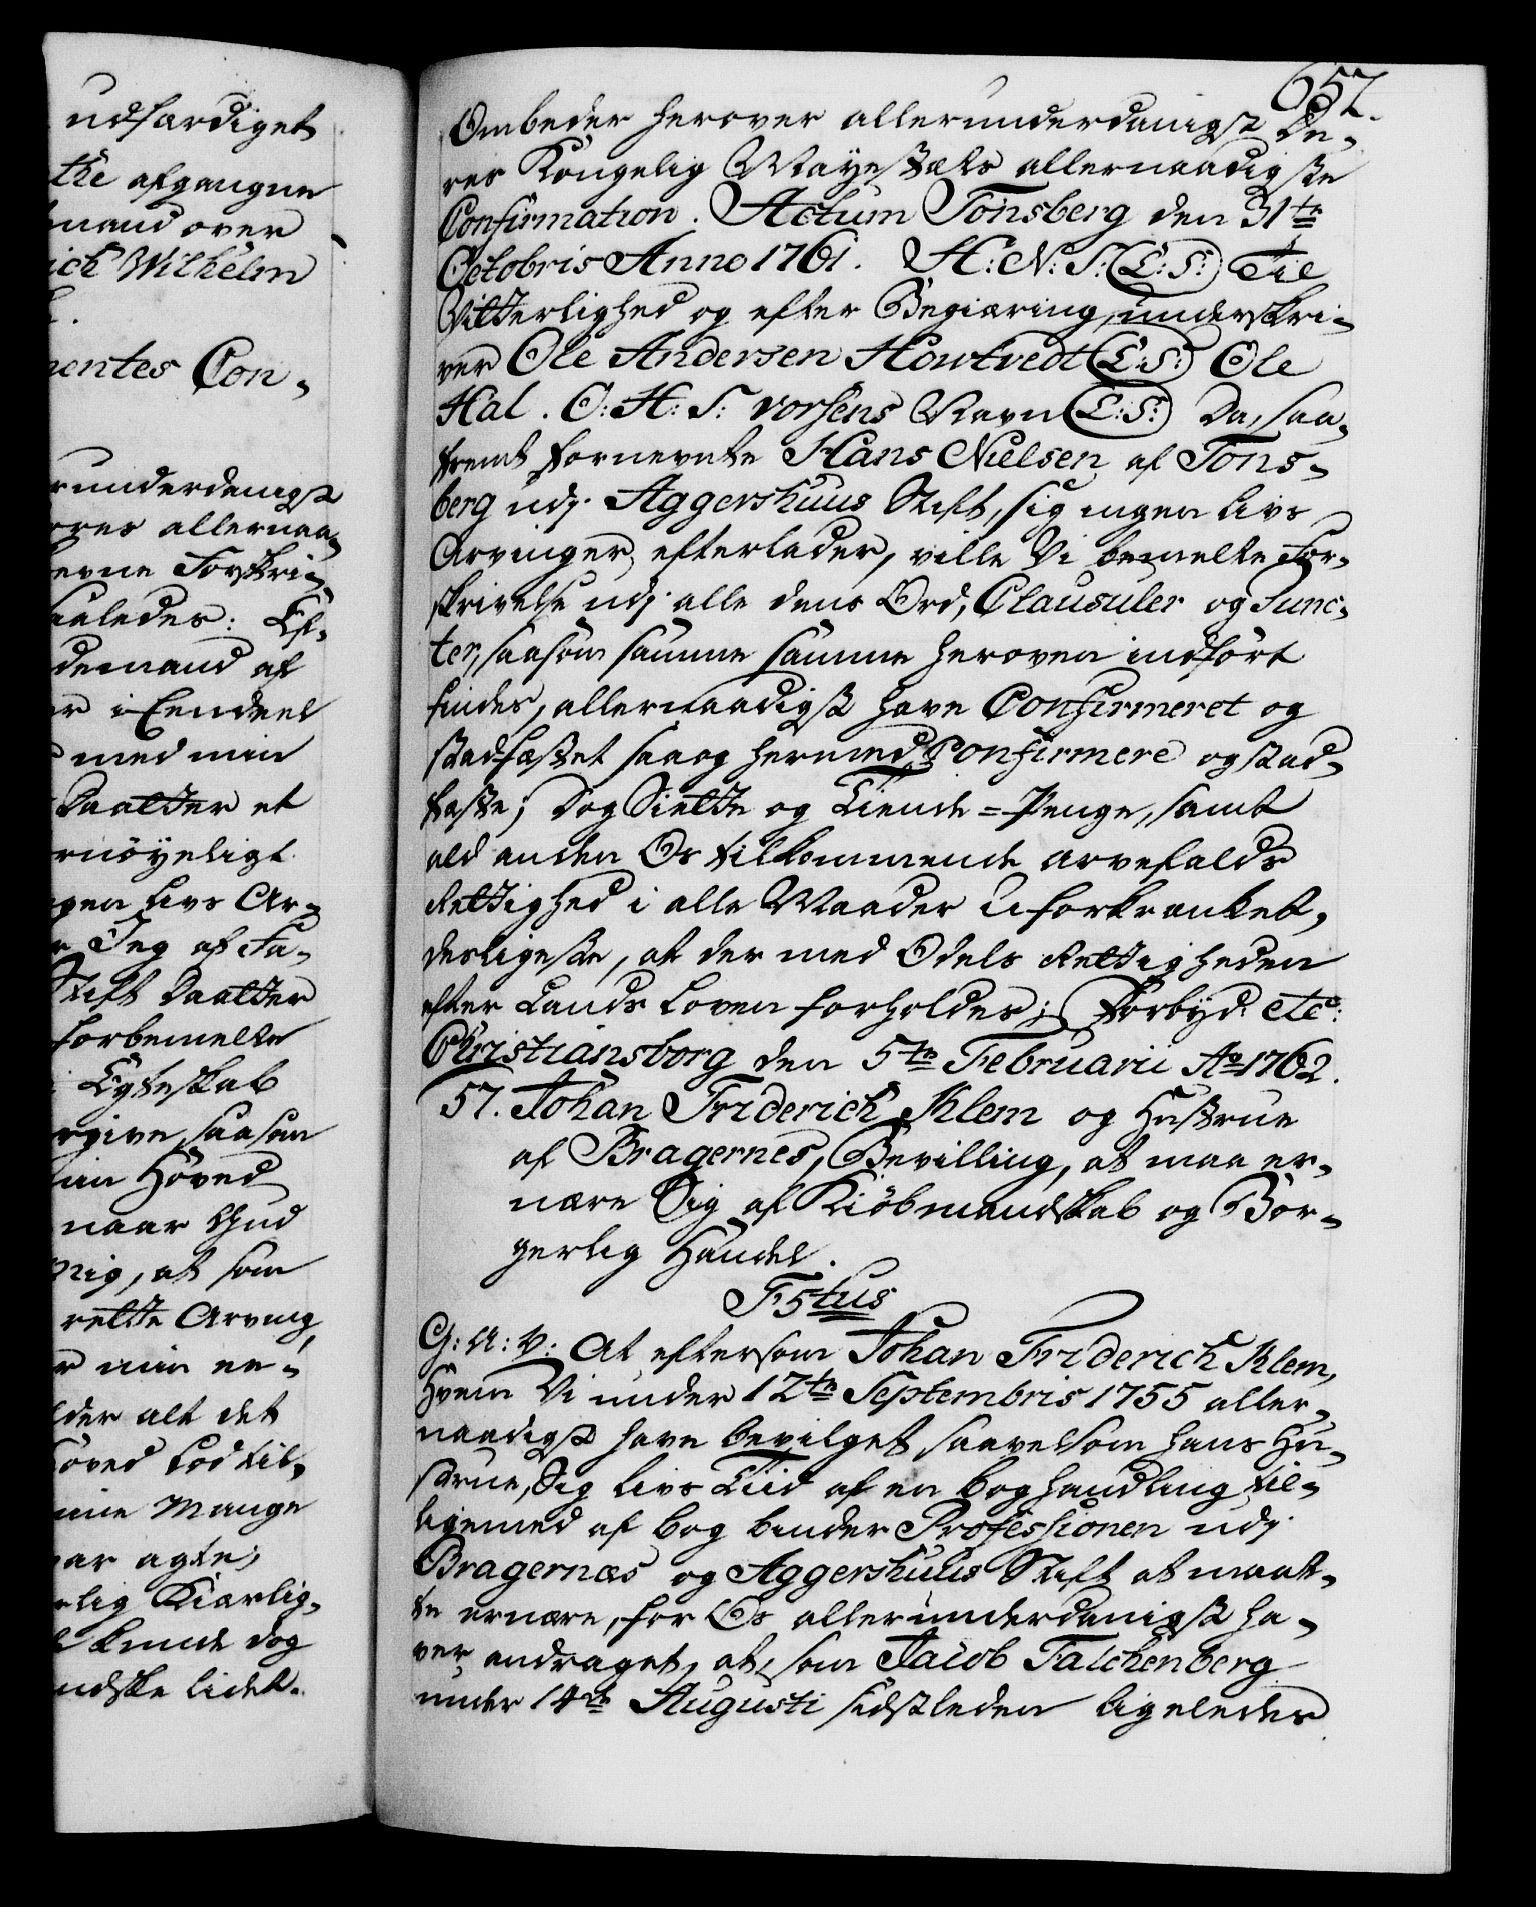 udfærdiget
the afgangne
mand over
ich Wilhelm
entes Con-
runderdanigst
ores allernaa-
evne Forskri-
aaledes: Ef-
demand af
er i Eendeel
med min
Daatter et
rnöyeligt
ngen Livs Ar-
Jeg af Fa-
Stift Daatter
forbemelte
Egteskab
rgive, saasom
min Hoved
naar Gud
rig, at som
rette Arving
r min en-
lder alt det
oved Lod til-
mine Mange
ar agte;
rlig Kiærlig-
kunde dog
ndske lidet.
657.
Ombeder herover allerunderdanigst De-
res Kongelig Mayestæts allernaadigste
Confirmation. Actum Tonsberg den 31te
Octobris Anno 1761. H: N: S: (L: S:) Til
Vitterlighed og efter Begiæring underskri-
ver Ole Andersen Howtvedt (L: S:) Ole
Hal. O: H: S: vorsens Navn (L: S:) Da, saa-
fremt fornevnte Hans Nielsen af Tons-
berg udj Aggershuus Stift, sig ingen Livs
Arvinger efterlader, ville Vi bemelte For-
skrivelse udj alle dens Ord, Clausuler og Punc-
ter, saasom samme samme heroven indfört
findes, allernaadigst have Confirmeret og
stadfæstet saaog hermed Confirmere og stad-
fæste; Dog Siette og Tiende=Penge, samt
ald anden Os tilkommende Arvefalds
Rettighed i alle Maader Uforkrænket,
desligeste, at der med Odels Rettigheden
efter Lands Loven forholdes; Forbyd: etc:
Christiansborg den 5te Februarii Ao 1762.
57. Johan Friderich Klem og Hustrue
af Bragernes, Bevilling, at maa er-
nære Sig af Kiöbmandskab og Bor-
gerlig Handel.
F 5tus
G: A: V: At eftersom Johan Friderich Klem,
Hvem Vi under 12te Septembris 1755 aller-
naadigst have bevilget saavelsom hans Hu-
strue, Sig Livs Tiid af en boghandling til-
ligemed af bog binder Professionen udj
Bragernæs og Aggershuus Stift at maat-
te ernære, for Os allerunderdanigst ha-
ver andraget, at, som Jacob Falchenberg
under 14de Augusti sidstleden ligeledes